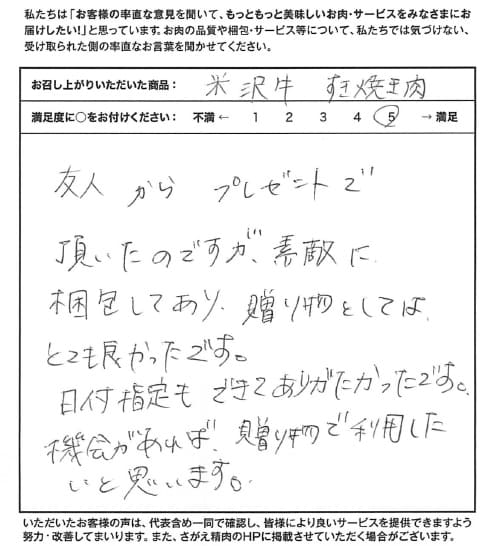 私たちは「お客様の率直な意見を聞いて、もっともっと美味しいお肉・サービスをみなさまにお
届けしたい!」と思っています。お肉の品質や梱包・サービス等について、私たちでは気づけない、
受け取られた側の率直なお言葉を聞かせてください。
お召し上がりいただいた商品: 米沢牛 すき焼き肉
満足度に○をお付けください: 不満 ← 1 2 3 4 5 → 満足
友人から プレゼントで
頂いたのですが、素敵に
梱包してあり、贈り物としては、
とても良かったです。
日付指定も できてありがたかったです。
機会があれば、贈り物で利用した
いと思います。
いただいたお客様の声は、代表含め一同で確認し、皆様により良いサービスを提供できますよう
努力・改善してまいります。また、さがえ精肉のHPに掲載させていただく場合がございます。